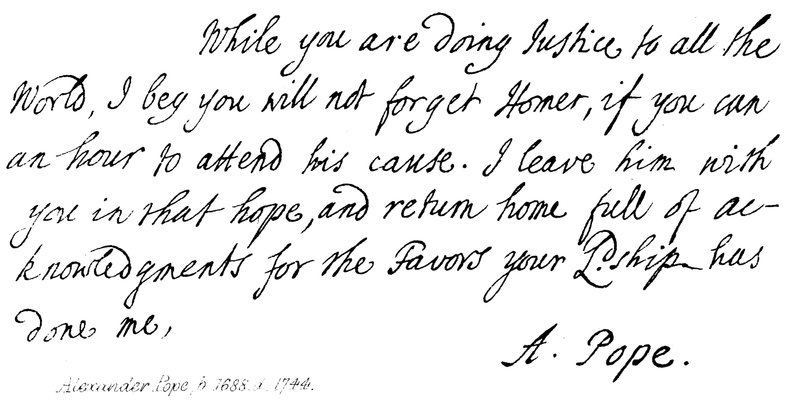 While you are doing Justice to all the
World, I beg you will not forget Homer, if you can
an hour to attend his cause. I leave him with
you in that hope, and return home full of ac-
knowledgments for the Favors your Ldship has
done me,
A. Pope.
Alexander Pope, b. 1688. d. 1744.